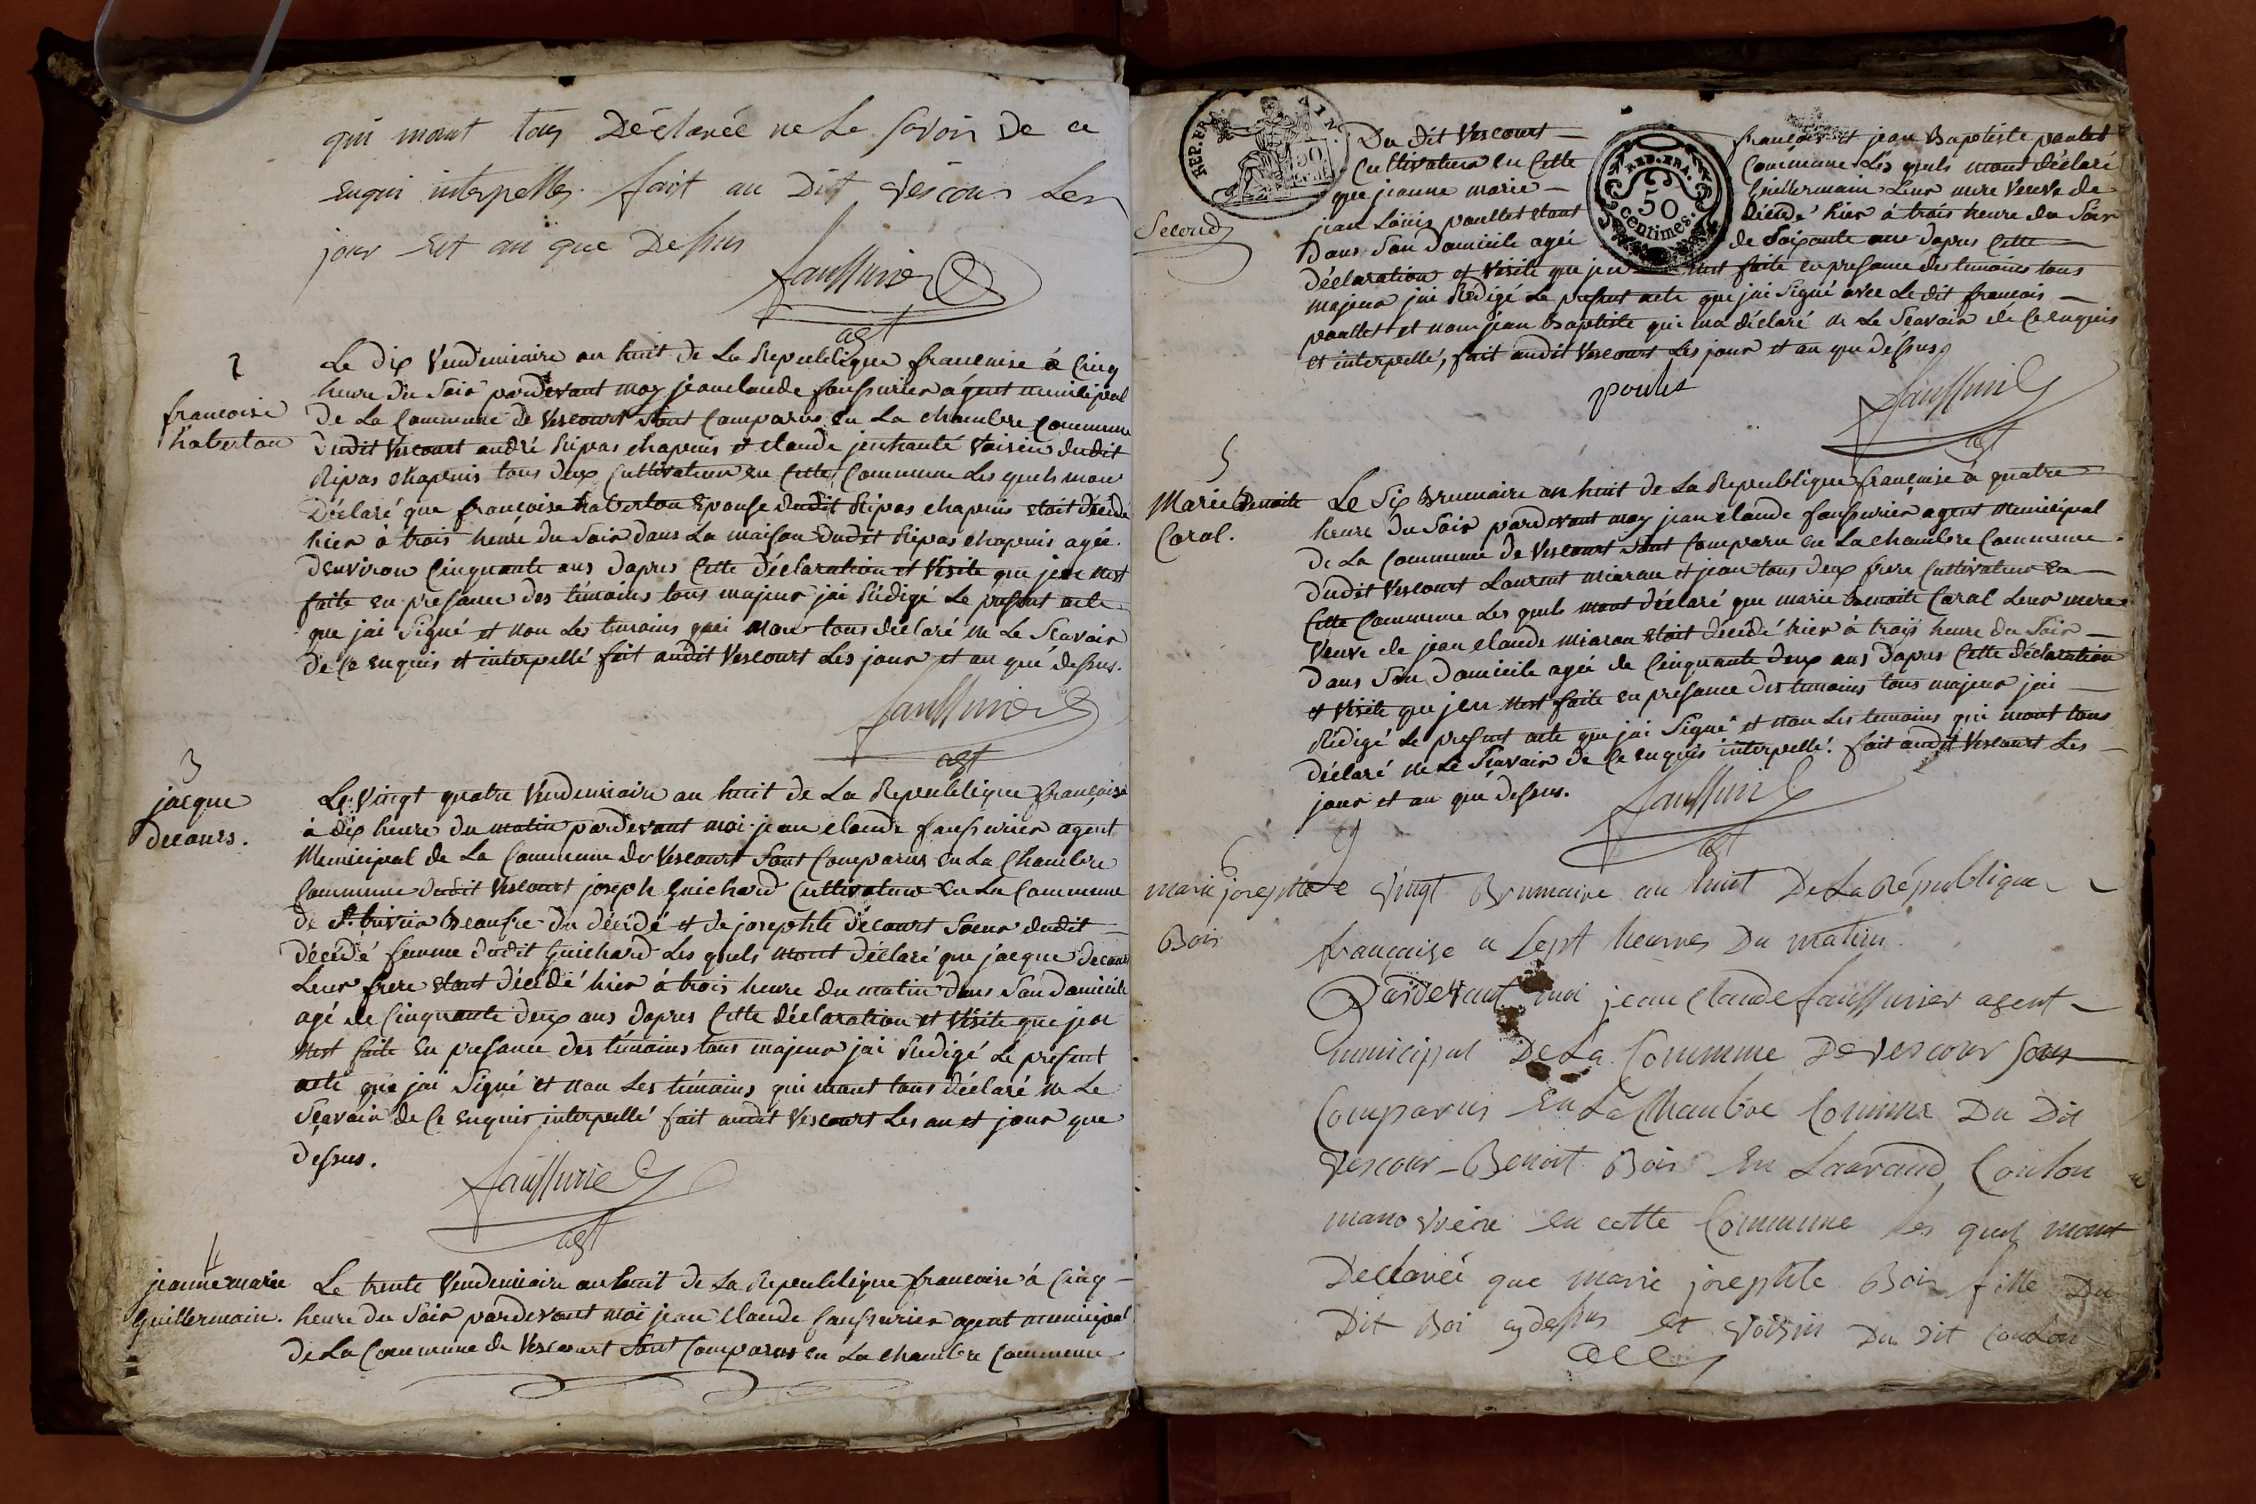 qui mont tous Déclarée ne Le Savoir De ce
enqui interpelles. fait au Dit Vescour Les
jour Est an que Dessus
faussurier
agt
2
francoise
traberton
Le dix Vendemiaire an huit de La Republique francaise à Cinq
heure du Soir pardevant moy jean claude faussurier agent municipal
de La Commune de Vescourt Sont Comparus en La chambre Commune
dudit Vescourt andré Ripas chapuis et claude jenhauté Voisin dudit
Ripas chapuis tous deux Cultivateur en Cette Commune Les quels mon
Déclaré que françoise traberton Epouse dudit Ripas chapuis etoit décédé
hier à trois heure du Soir dans La maison dudit Ripas chapuis agée
d'environ Cinquante ans dapres Cette déclaration et Visite que jen mest
faite en presance des témoins tous majeur jai Rédigé Le present acte
que jai Signé et non Les temoins qui mon tous déclaré ne Le Scavoir
de Ce enquis et interpellé fait audit Vescourt Les jour et an que dessus.
faussurier
agt
3
jacque
decours.
Le Vingt quatre Vendemiaire an huit de La Republique françoise
à dix heure du matin pardevant moi jean claude faussurier agent
Municipal de La Commune de Vescourt Sont Comparus en La Chambre
Commune dudit Vescourt joseph Guichard Cultivateur en La Commune
de St. trivier Beaufre du décédé et de josephte décourt Soeur dudit
décédé femme dudit Guichard Les quels mont déclaré que jacque decour
Leur frere etant décédé hier à trois heure du matin dans Son Domicile
agé de Cinquante deux ans dapres Cette déclaration et Visite que jen
mest faite En presance des témoins tous majeur jai Redigé Le present
acte que jai Signé et non Les témoins qui mont tous déclaré ne Le
Scavoir de Ce enquis interpellé fait audit Vescourt Les an et jour que
dessus.
faussurier
agt
4
jeanne marie
guillermain.
Le trente Vendemiaire an huit de La Republique francaise à Cinq
heure du Soir pardevant moi jean claude faussurier agent municipal
de La Commune de Vescourt Sont Comparus en La chambre Commune
REP. FRA.
50
REP. FRA.
50
centimes.
Second
Du dit Vescourt françois et jean Baptiste poulet
Cultivateur en Cette Commune Les quels mont déclaré
que jeanne marie guillermain Leur mere Veuve de
jean Loüis paullet etant décédé hier à trois heure du Soir
Dans Son domicile agéé de Soixante ans dapres Cette
déclaration et Visite que jen mest faite en presance des temoins tous
majeur jai Rédigé Le present acte que jai Signé avec Le dit francois
paullet et nom jean Baptiste qui ma déclaré ne Le Scavoir de Ce enquis
et interpellé, fait audit Vescourt Les jour et an que dessus.
poulet
faussurier
agt
5
Marie Benoite
Caral.
Le Six Brumaire an huit de La Republique française à quatre
heure du Soir pardevant moy jean claude faussurier agent Municipal
de La Commune de Vescourt Sont Comparu en La chambre Commune
dudit Vescourt Laurent miaran et jean tous deux frere Cultivateur en
Cette Commune Les quels mont déclaré que marie benoite Caral Leur mere
Veuve de jean claude miaran etoit décédé hier à trois heure du Soir
dans Son Domicile agéé de Cinquante deux ans dapres Cette déclaration
et Visite que jen mest faite en presance des temoins tous majeur jai
Rédigé Le present acte que jai Signé et non Les temoins qui mont tous
déclaré ne Le Scavoir de Ce enquis interpellé. fait audit Vescourt Les
jour et an que dessus.
faussurier
agt
6
marie josephte
Bois
Le Vingt Brumaire an huit De La République
française a Sept heures Du matin
Pardevant moi jean claude faussurier agent
municipal De La Commune De Vescour Sont
Comparus En La Chambre Comune Du Dit
Vescour Benoit Bois En Laurand Coulon
mano Vrére en cette Commune Les quel mont
Déclarée que marie josephte Bois fille Du
Dit Boi cy dessus et Voisin Du dit Coulon